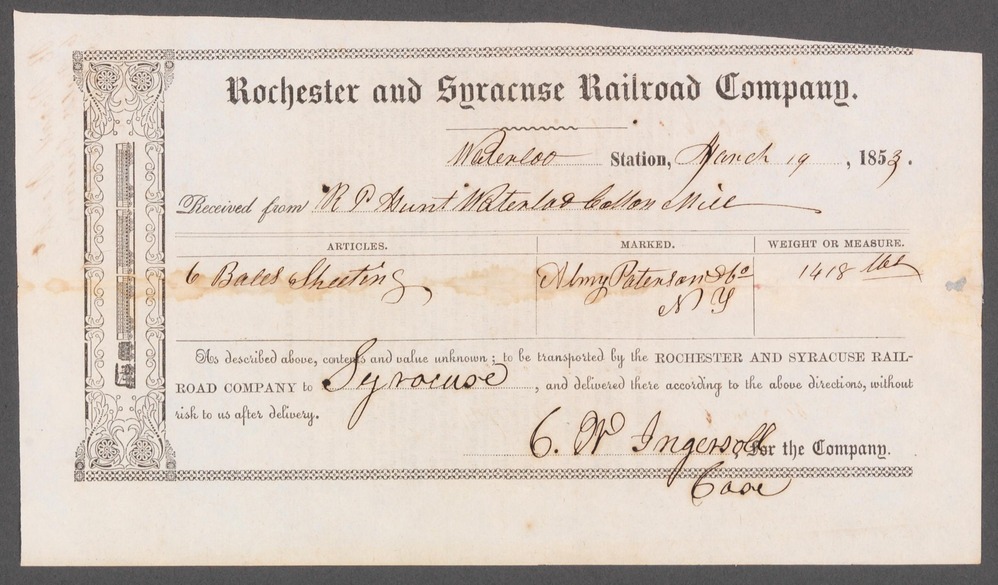 Rochester and Syracuse Railroad Company.
Waterloo Station, March 19, 1853.
Received from R P Hunt Waterloo Cotton Mill
ARTICLES. MARKED. WEIGHT OR MEASURE.
6 Bales Sheeting Almy Paterson & Co 1418 lbs
N Y
As described above, contents and value unknown; to be transported by the ROCHESTER AND SYRACUSE RAIL-
ROAD COMPANY to Syracuse, and delivered there according to the above directions, without
risk to us after delivery.
C. W Ingersoll For the Company.